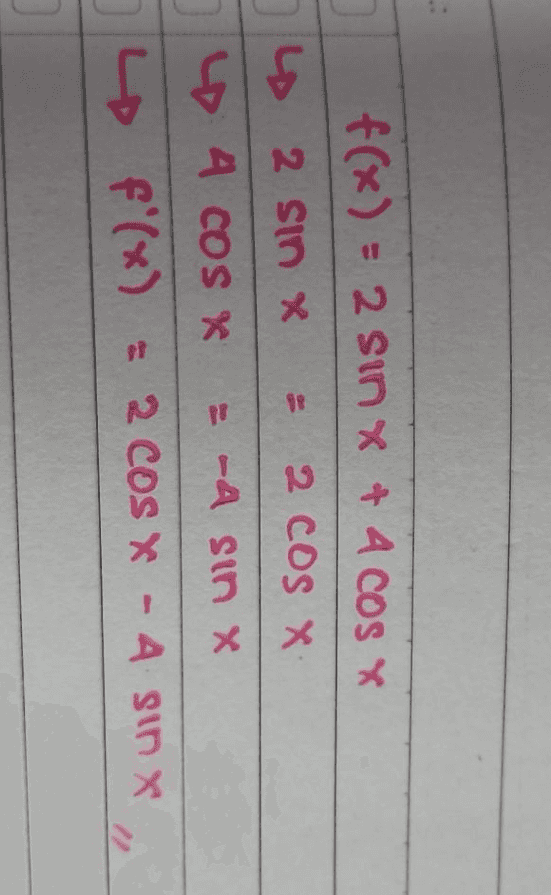 f(x) = 2 sin x + 4 cos x
↳ 2 sin x = 2 cos x
↳ 4 cos x = -4 sin x
↳ f'(x) = 2 cos x - 4 sin x "